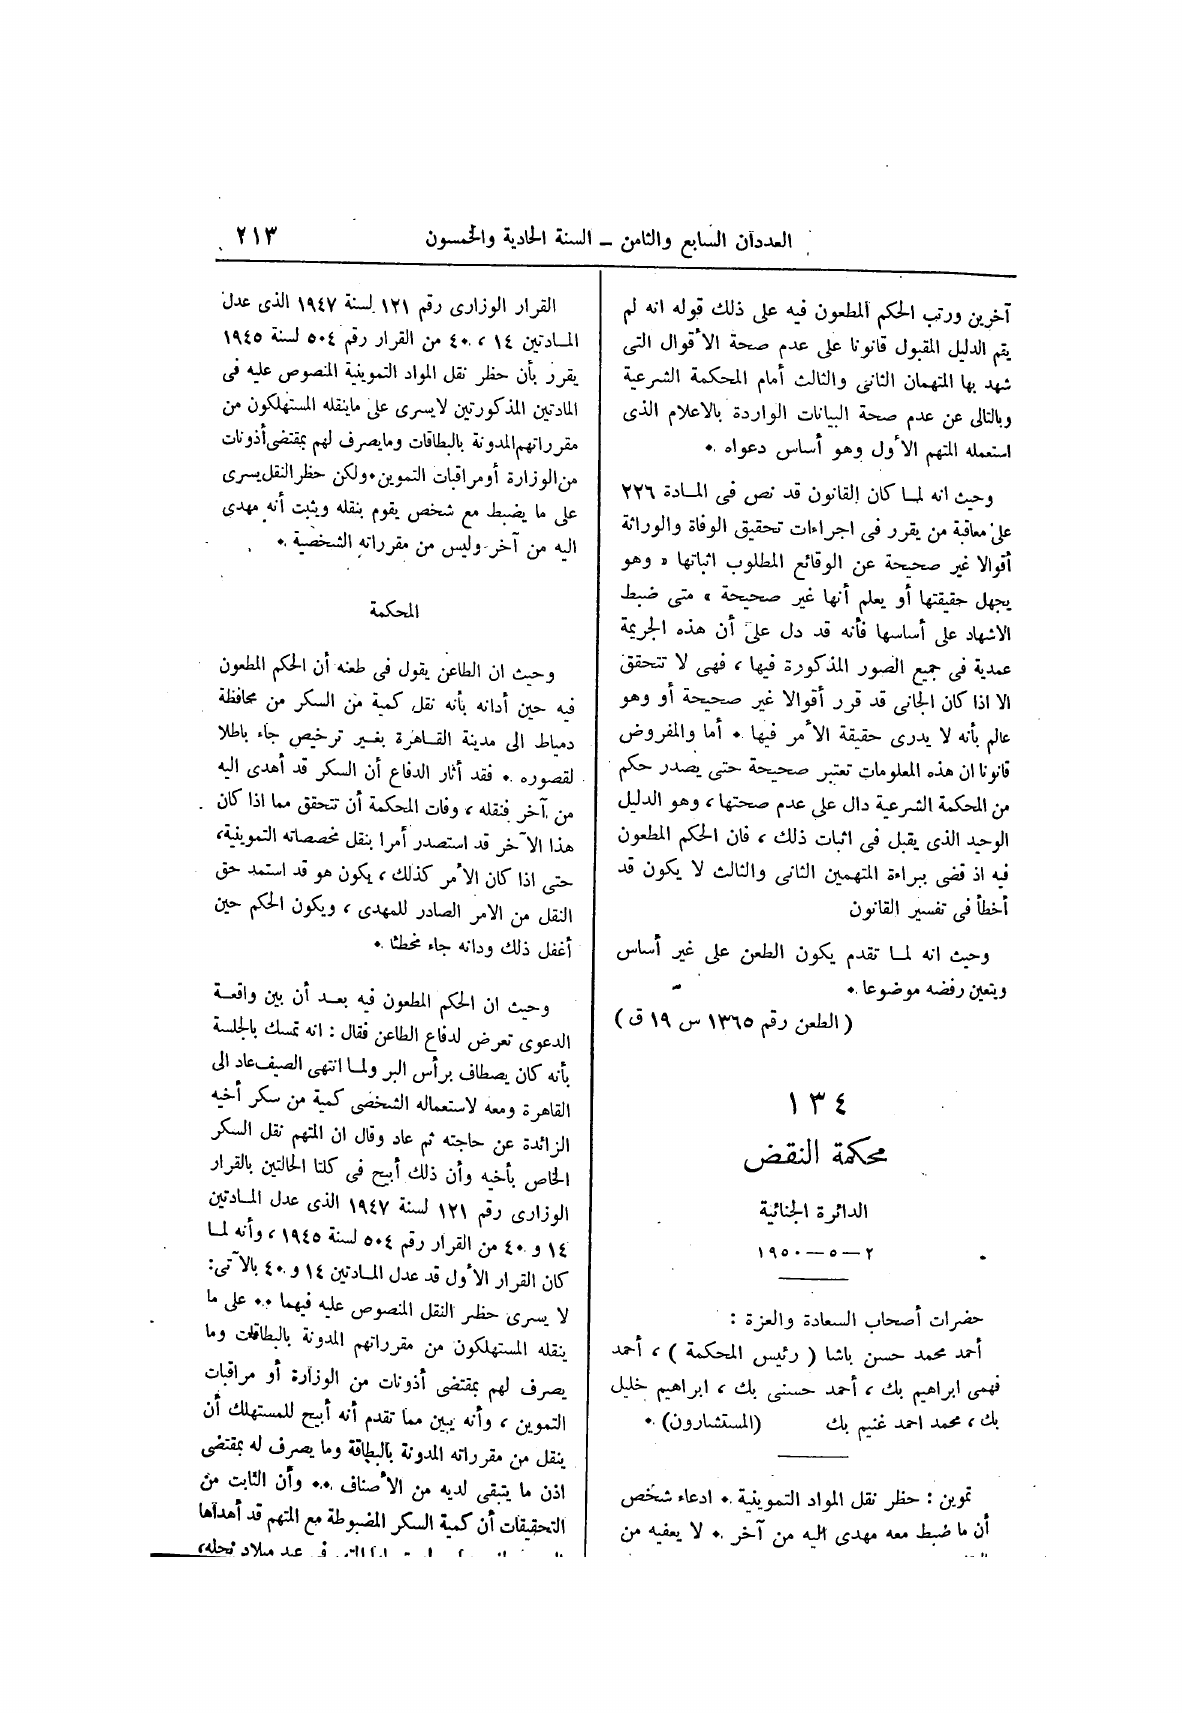 العددان السابع والثامن ــ السنة الحادية والخمسون ٢١٣
آخرين ورتب الحكم المطعون فيه على ذلك قوله انه لم
يقم الدليل المقبول قانونا على عدم صحة الأقوال التى
شهد بها المتهمان الثانى والثالث أمام المحكمة الشرعية
وبالتالى عن عدم صحة البيانات الواردة بالاعلام الذى
استعمله المتهم الأول وهو أساس دعواه .
وحيث انه لما كان القانون قد نص فى المادة ٢٢٦
على معاقبة من يقرر فى اجراءات تحقيق الوفاة والوراثة
أقوالا غير صحيحة عن الوقائع المطلوب اثباتها « وهو
يجهل حقيقتها أو يعلم أنها غير صحيحة » متى ضبط
الاشهاد على أساسها فأنه قد دل على أن هذه الجريمة
عمدية فى جميع الصور المذكورة فيها ، فهى لا تتحقق
الا اذا كان الجانى قد قرر أقوالا غير صحيحة أو وهو
عالم بأنه لا يدرى حقيقة الأمر فيها . أما والمفروض
قانونا ان هذه المعلومات تعتبر صحيحة حتى يصدر حكم
من المحكمة الشرعية دال على عدم صحتها ، وهو الدليل
الوحيد الذى يقبل فى اثبات ذلك ، فان الحكم المطعون
فيه اذ قضى ببراءة المتهمين الثانى والثالث لا يكون قد
أخطأ فى تفسير القانون
وحيث انه لما تقدم يكون الطعن على غير أساس
ويتعين رفضه موضوعا .
( الطعن رقم ١٣٦٥ س ١٩ ق )
١٣٤
محكمة النقض
الدائرة الجنائية
٢ — ٥ — ١٩٥٠
حضرات أصحاب السعادة والعزة :
أحمد محمد حسن باشا ( رئيس المحكمة ) ، أحمد
فهمى ابراهيم بك ، أحمد حسنى بك ، ابراهيم خليل
بك ، محمد احمد غنيم بك (المستشارون) .
تموين : حظر نقل المواد التموينية . ادعاء شخص
أن ما ضبط معه مهدى اليه من آخر . لا يعفيه من
القرار الوزارى رقم ١٢١ لسنة ١٩٤٧ الذى عدل
المادتين ١٤ ، ٤٠ من القرار رقم ٥٠٤ لسنة ١٩٤٥
يقرر بأن حظر نقل المواد التموينية المنصوص عليه فى
المادتين المذكورتين لا يسرى على ماينقله المستهلكون من
مقرراتهم المدونة بالبطاقات ومايصرف لهم بمقتضى أذونات
من الوزارة أومراقبات التموين . ولكن حظر النقل يسرى
على ما يضبط مع شخص يقوم بنقله ويثبت أنه مهدى
اليه من آخر وليس من مقرراته الشخصية .
المحكمة
وحيث ان الطاعن يقول فى طعنه أن الحكم المطعون
فيه حين أدانه بأنه نقل كمية من السكر من محافظة
دمياط الى مدينة القاهرة بغير ترخيص جاء باطلا
لقصوره . فقد أثار الدفاع أن السكر قد أهدى اليه
من آخر فنقله ، وفات المحكمة أن تتحقق مما اذا كان
هذا الآخر قد استصدر أمرا بنقل مخصصاته التموينية،
حتى اذا كان الأمر كذلك ، يكون هو قد استمد حق
النقل من الامر الصادر للمهدى ، ويكون الحكم حين
أغفل ذلك ودانه جاء مخطئا .
وحيث ان الحكم المطعون فيه بعد أن بين واقعة
الدعوى تعرض لدفاع الطاعن فقال : انه تمسك بالجلسة
بأنه كان يصطاف برأس البر ولما انتهى الصيف عاد الى
القاهرة ومعه لاستعماله الشخصى كمية من سكر أخيه
الزائدة عن حاجته ثم عاد وقال ان المتهم نقل السكر
الخاص بأخيه وأن ذلك أبيح فى كلتا الحالتين بالقرار
الوزارى رقم ١٢١ لسنة ١٩٤٧ الذى عدل المادتين
١٤ و ٤٠ من القرار رقم ٥٠٤ لسنة ١٩٤٥ ، وأنه لما
كان القرار الأول قد عدل المادتين ١٤ و ٤٠ بالآتى :
لا يسرى حظر النقل المنصوص عليه فيهما .. على ما
ينقله المستهلكون من مقرراتهم المدونة بالبطاقات وما
يصرف لهم بمقتضى أذونات من الوزارة أو مراقبات
التموين ، وأنه يبين مما تقدم أنه أبيح للمستهلك أن
ينقل من مقرراته المدونة بالبطاقة وما يصرف له بمقتضى
اذن ما يتبقى لديه من الأصناف .. وأن الثابت من
التحقيقات أن كمية السكر المضبوطة مع المتهم قد أهداها
فى عيد ميلاد نجله،